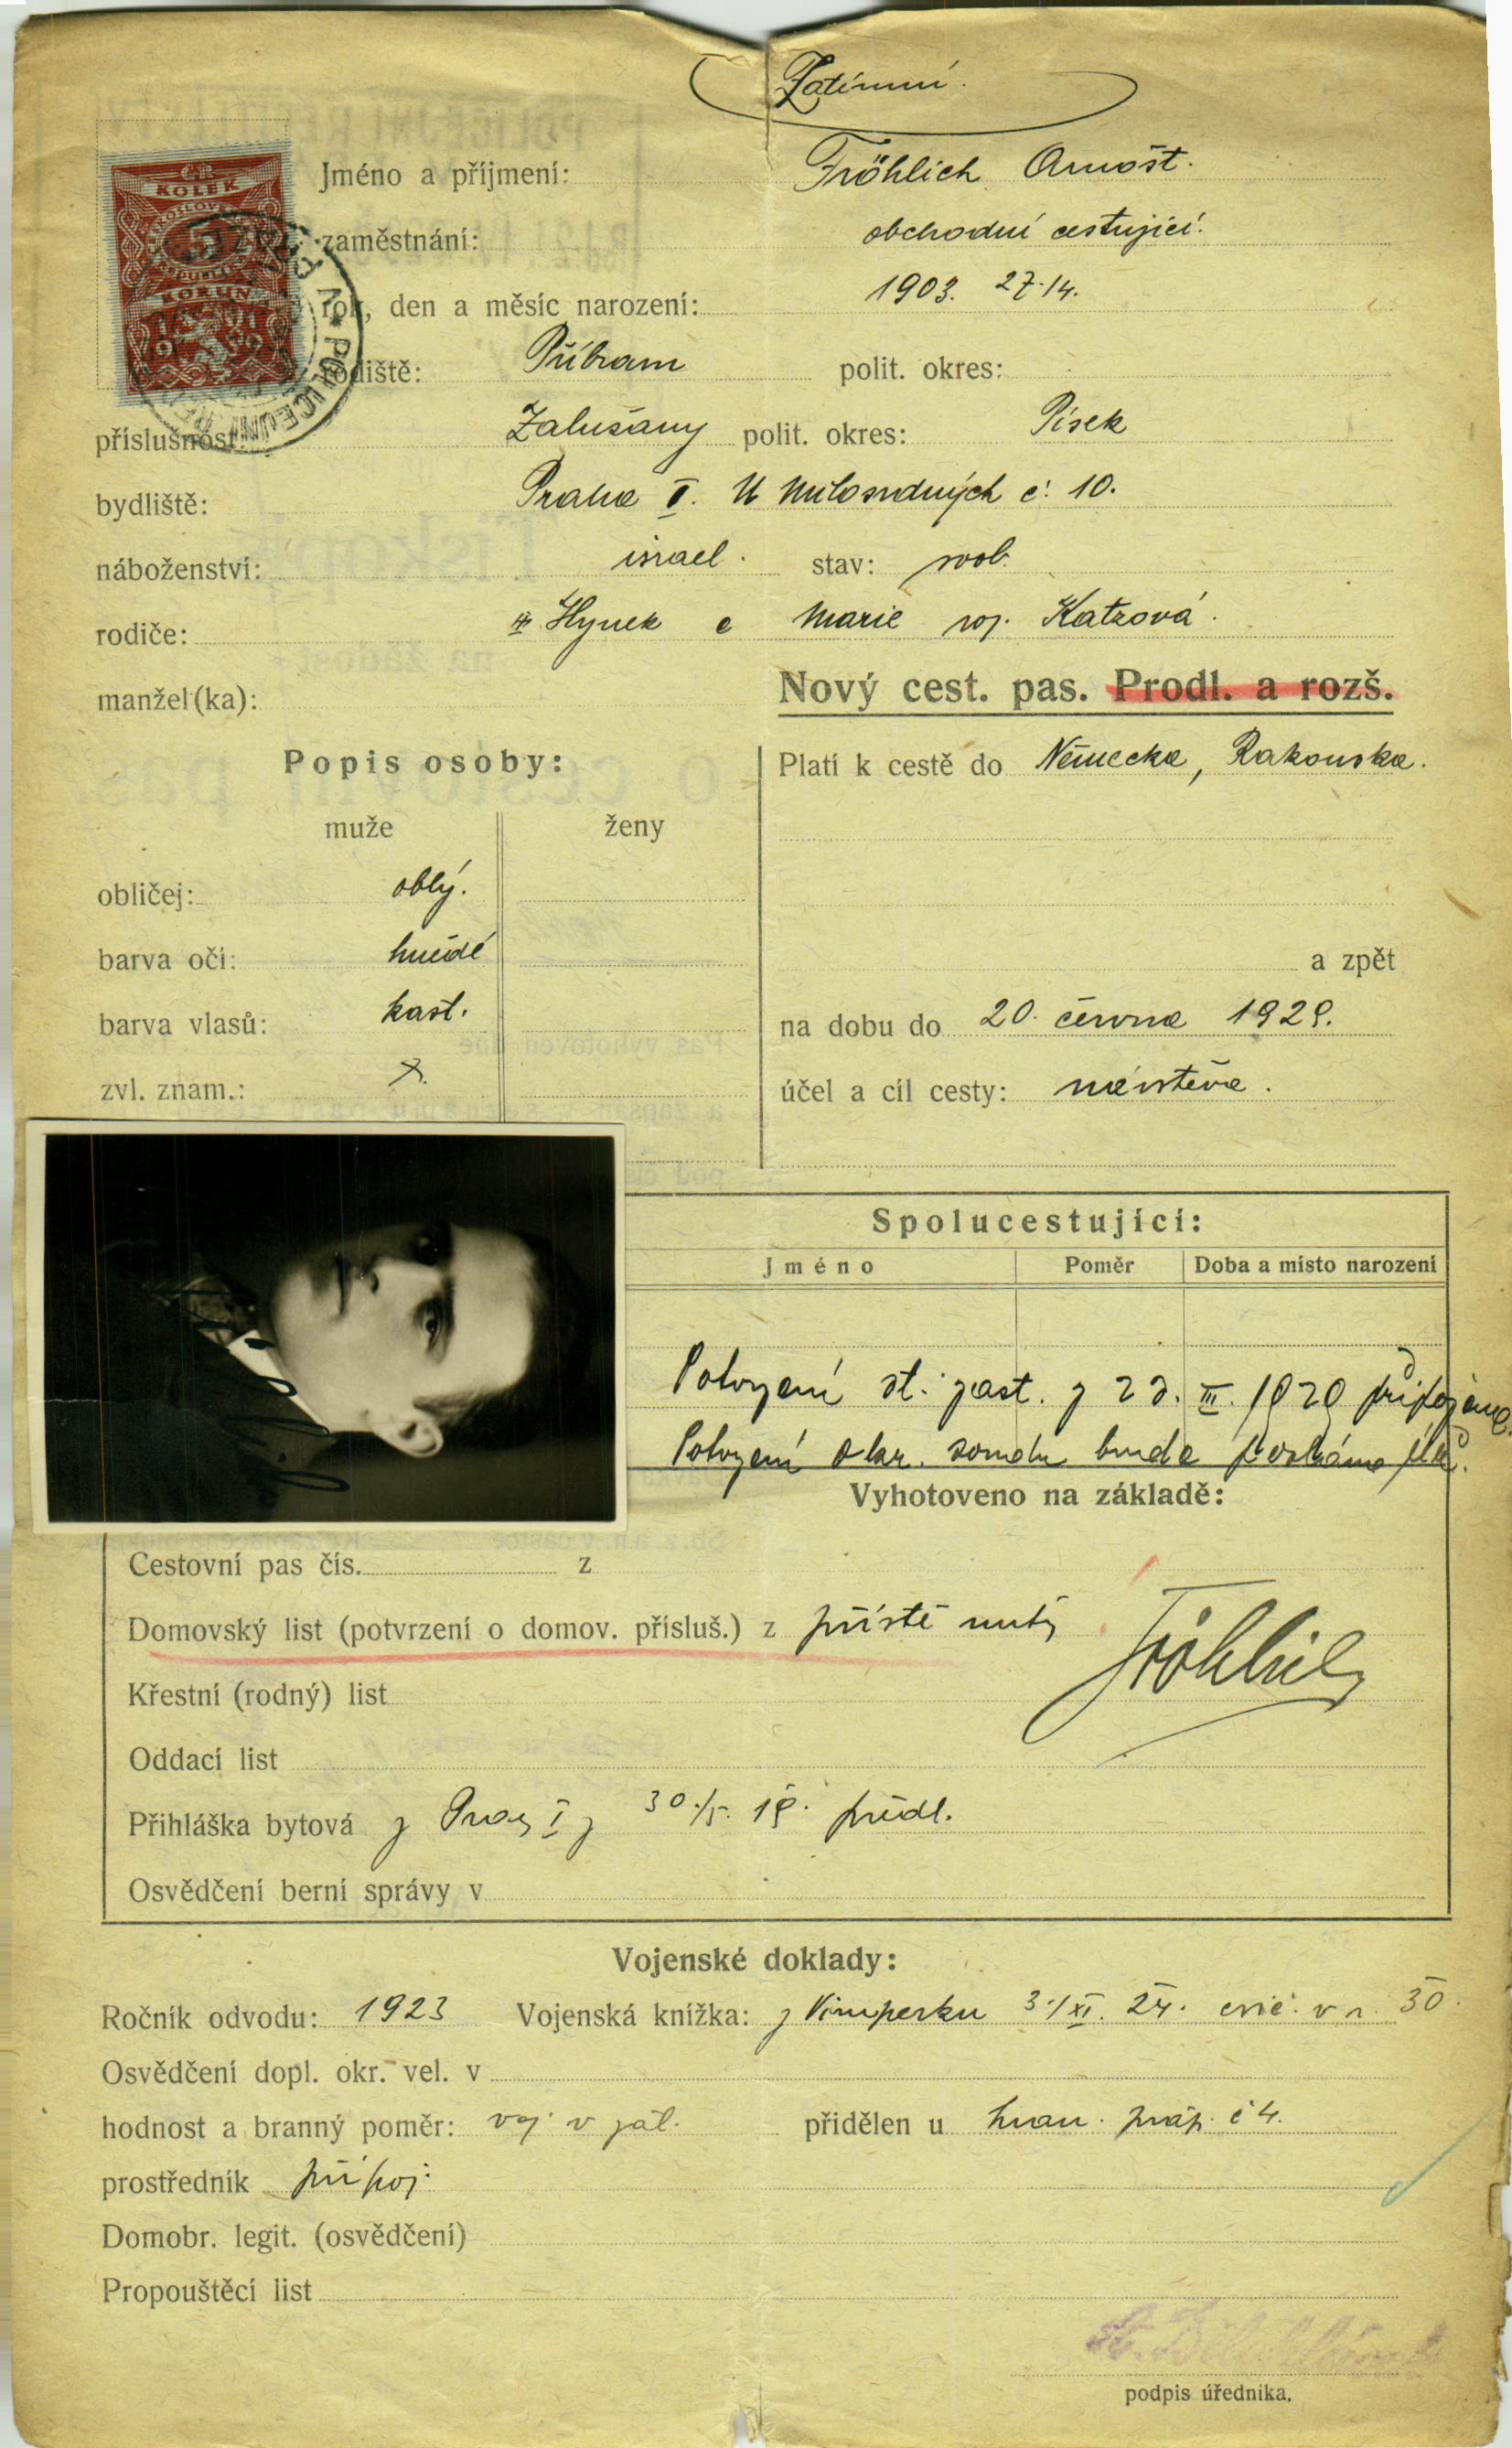 Zatímní.
Jméno a příjmení: Fröhlich Arnošt.
zaměstnání: obchodní cestující.
rok, den a měsíc narození: 1903. 27./4.
rodiště: Příbram polit. okres:
příslušnost: Zalužany polit. okres: Písek
bydliště: Praha I. U Milosrdných č. 10.
náboženství: israel. stav: svob.
rodiče: Hynek a Marie roz. Katzová.
manžel(ka):
Nový cest. pas. Prodl. a rozš.
Popis osoby:
muže ženy
obličej: oblý.
barva očí: hnědé
barva vlasů: kašt.
zvl. znam.:
Platí k cestě do Německa, Rakouska.
a zpět
na dobu do 20. června 1929.
účel a cíl cesty: návštěva.
KOLEK
5
KORUN
1919
POLICEJNÍ
Spolucestující:
Jméno Poměr Doba a místo narození
Potvrzení st. zast. z 23. III. 1929 připojeno.
Potvrzení okr. soudu bude
Vyhotoveno na základě:
Cestovní pas čís. z
Domovský list (potvrzení o domov. přísluš.) z příště nutý
Fröhlich
Křestní (rodný) list
Oddací list
Přihláška bytová z Prahy I z 30./5. 19. předl.
Osvědčení berní správy v
Vojenské doklady:
Ročník odvodu: 1923 Vojenská knížka: z Vimperku 3./XI. 24. cvič. v r. 30.
Osvědčení dopl. okr. vel. v
hodnost a branný poměr: voj. v zál. přidělen u hran. práp. č 4.
prostředník připoj.
Domobr. legit. (osvědčení)
Propouštěcí list
podpis úředníka.